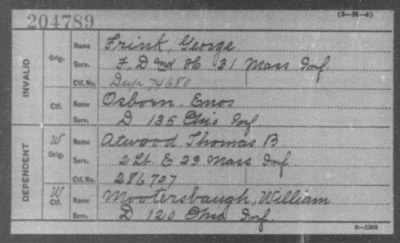 204789
(3—M—4)
INVALID
Orig.
Name Frink, George
Serv. F, D and H 31 Mass Inf.
Ctf. No. Dup 74680
Ctf.
Name Osborn, Enos
Serv. D 135 Ohio Inf
DEPENDENT
W Orig.
Name Atwood Thomas B
Serv. 2 Lt. E 23 Mass Inf.
Ctf. No. 286707
W Ctf.
Name Mootersbaugh, William
Serv. D 120 Ohio Inf.